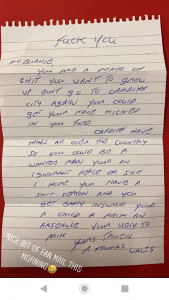 FUCK YOU
MCBURNIE
YOU ARE A PEACE OF
SHIT YOU WANT TO GROW
UP DONT GO TO CARDIFF
CITY AGAIN YOU COULD
GET YOUR FACE KICKED
IN YOU
CARDIFF HAVE
ALL OVER THE COUNTRY
SO YOU COULD BE A
MAN YOUR AN
IGNORANT PEACE OF SHIT
I HOPE YOU HAVE A
SHIT SEASON AND YOU
GET BADLY INJURED YOUR
A CHILD A
ARSEHOLE YOUR UGLY TO
YOURS
A
WALES
NICE BIT OF FAN MAIL THIS
MORNING 😂